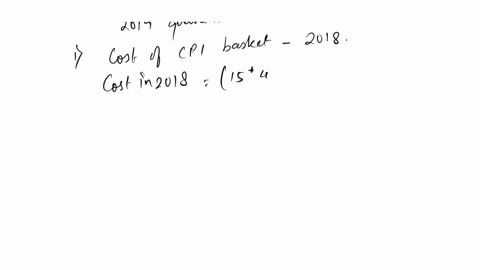 2019
1) Cost of CPI basket - 2018.
Cost in 2018 = (15 + 4